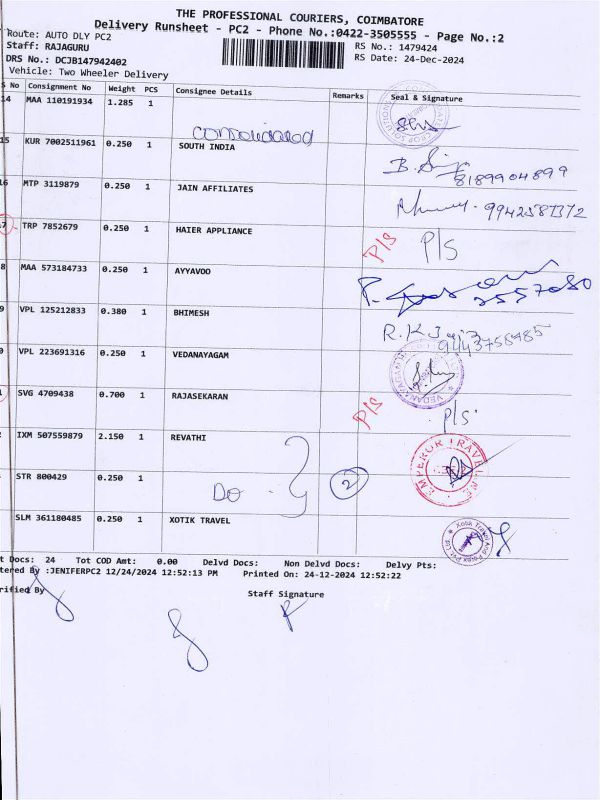 THE PROFESSIONAL COURIERS, COIMBATORE
Delivery Runsheet - PC2 - Phone No.:0422-3505555 - Page No.:2
Route: AUTO DLY PC2
Staff: RAJAGURU RS No.: 1479424
DRS No.: DCJB147942402 RS Date: 24-Dec-2024
Vehicle: Two Wheeler Delivery
S No Consignment No Weight PCS Consignee Details Remarks Seal & Signature
14 MAA 110191934 1.285 1
consolidated
15 KUR 7002511961 0.250 1 SOUTH INDIA
8189904899
16 MTP 3119879 0.250 1 JAIN AFFILIATES
9942587372
17 TRP 7852679 0.250 1 HAIER APPLIANCE P/S P/S
8 MAA 573184733 0.250 1 AYYAVOO
2557080
9 VPL 125212833 0.380 1 BHIMESH
R.K
9443758485
0 VPL 223691316 0.250 1 VEDANAYAGAM
VEDANAYAGAM
SVG 4709438 0.700 1 RAJASEKARAN P/S P/S
IXM 507559879 2.150 1 REVATHI
EMPEROR TRAVEL
STR 800429 0.250 1 DO 2
SLM 361180485 0.250 1 XOTIK TRAVEL
Xotik Travel And Forex Pvt Ltd
t Docs: 24 Tot COD Amt: 0.00 Delvd Docs: Non Delvd Docs: Delvy Pts:
tered By :JENIFERPC2 12/24/2024 12:52:13 PM Printed On: 24-12-2024 12:52:22
rified By Staff Signature